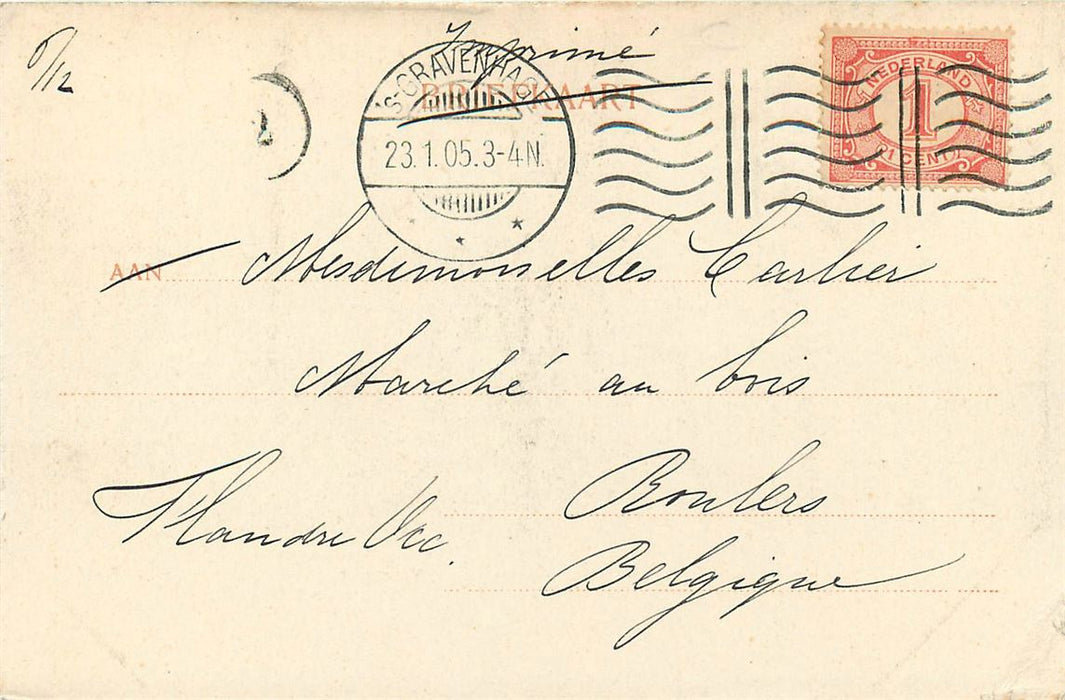 6/12
Imprimé
BRIEFKAART
'S-GRAVENHAGE
23.1.05.3-4N.
NEDERLAND
1
1 CENT
AAN
Mesdemoiselles Carlier
Marché au bois
Roulers
Flandre Occ.
Belgique